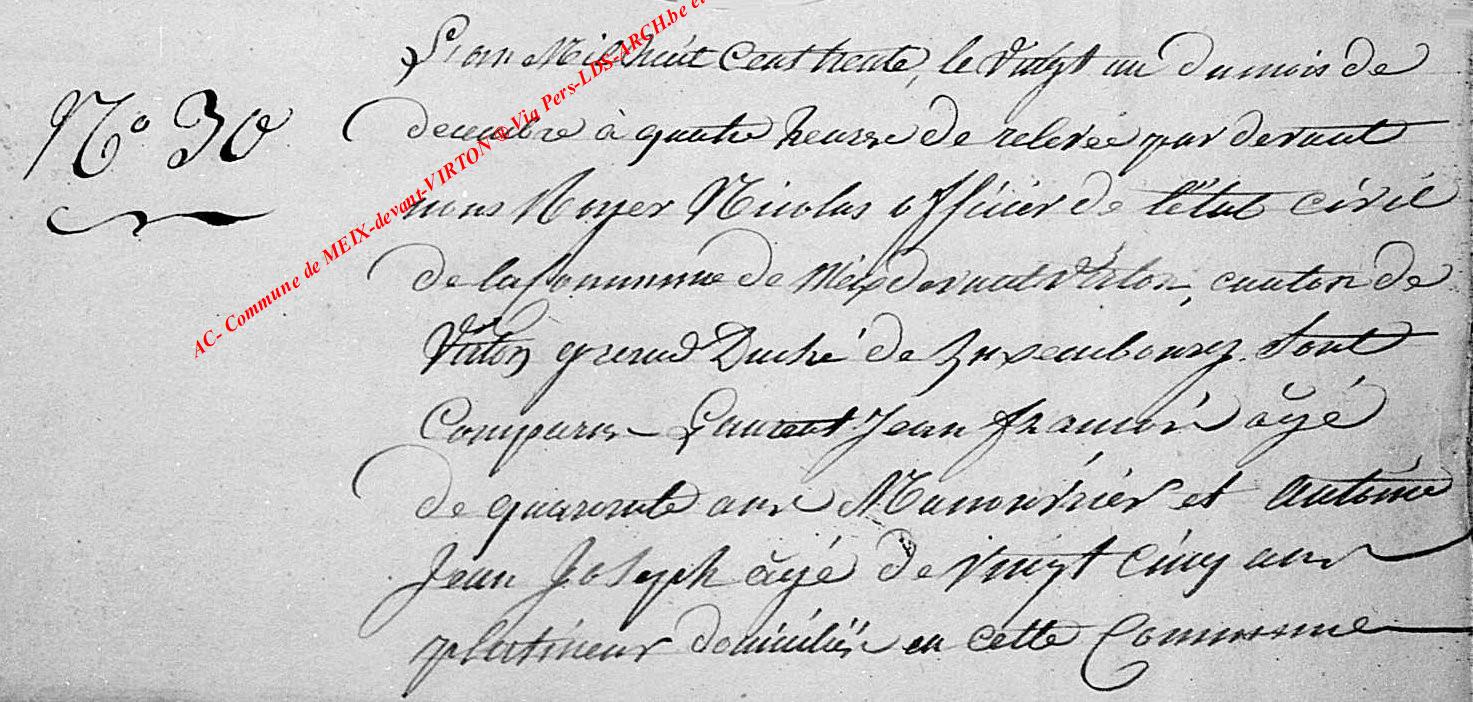 L'an Mil huit Cent trente, le Vingt un du mois de
N° 30
decembre à quatre heures de relevée par devant
nous Royer Nicolas officier de l'état civil
de la Commune de Meix devant Virton, canton de
Virton grand Duché de Luxembourg. Sont
Comparus Laurent Jean François âgé
de quarante ans Manouvrier et Antoine
Jean Joseph âgé de vingt cinq ans
platineur domiciliés en cette Commune
AC- Commune de MEIX-devant-VIRTON ® Via Pers-LDS-ARCH.be et